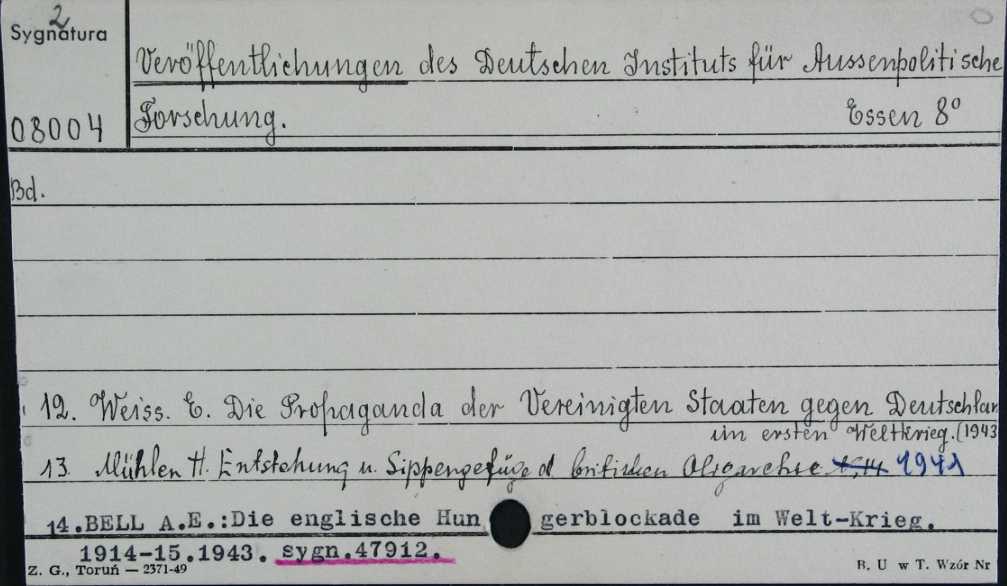 2
Sygnatura
Veröffentlichungen des Deutschen Instituts für Aussenpolitische
08004
Forschung. Essen 8°
Bd.
12. Weiss. E. Die Propaganda der Vereinigten Staaten gegen Deutschlan
im ersten Weltkrieg. (1943
13. Mühlen H. Entstehung u. Sippengefüge d britischen 1941
14.BELL A.E.:Die englische Hungerblockade im Welt-Krieg.
1914-15.1943. sygn.47912.
Z. G., Toruń — 2371-49 B. U w T. Wzór Nr